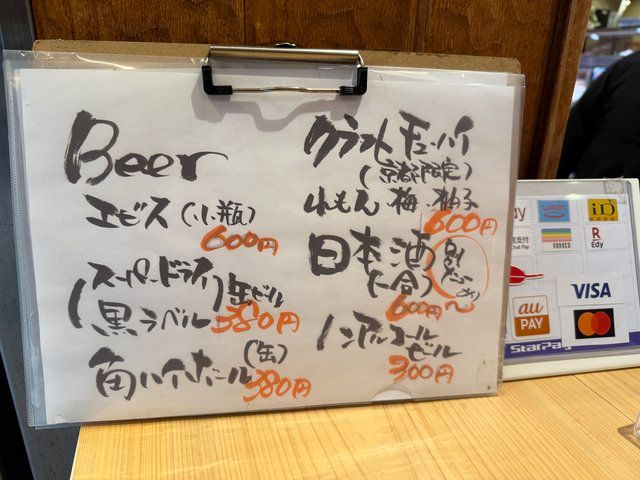 Beer
エビス(小瓶)
600円
(スーパードライ
黒ラベル)缶ビール
380円
角ハイボール(缶)
380円
クラフトチューハイ
(京都限定)
れもん 梅 柚子
600円
日本酒
(一合)
別紙
あり
600円〜
ノンアルコール
ビール
300円
iD
nanaco
R
Edy
au
PAY
VISA
mastercard
StarPay